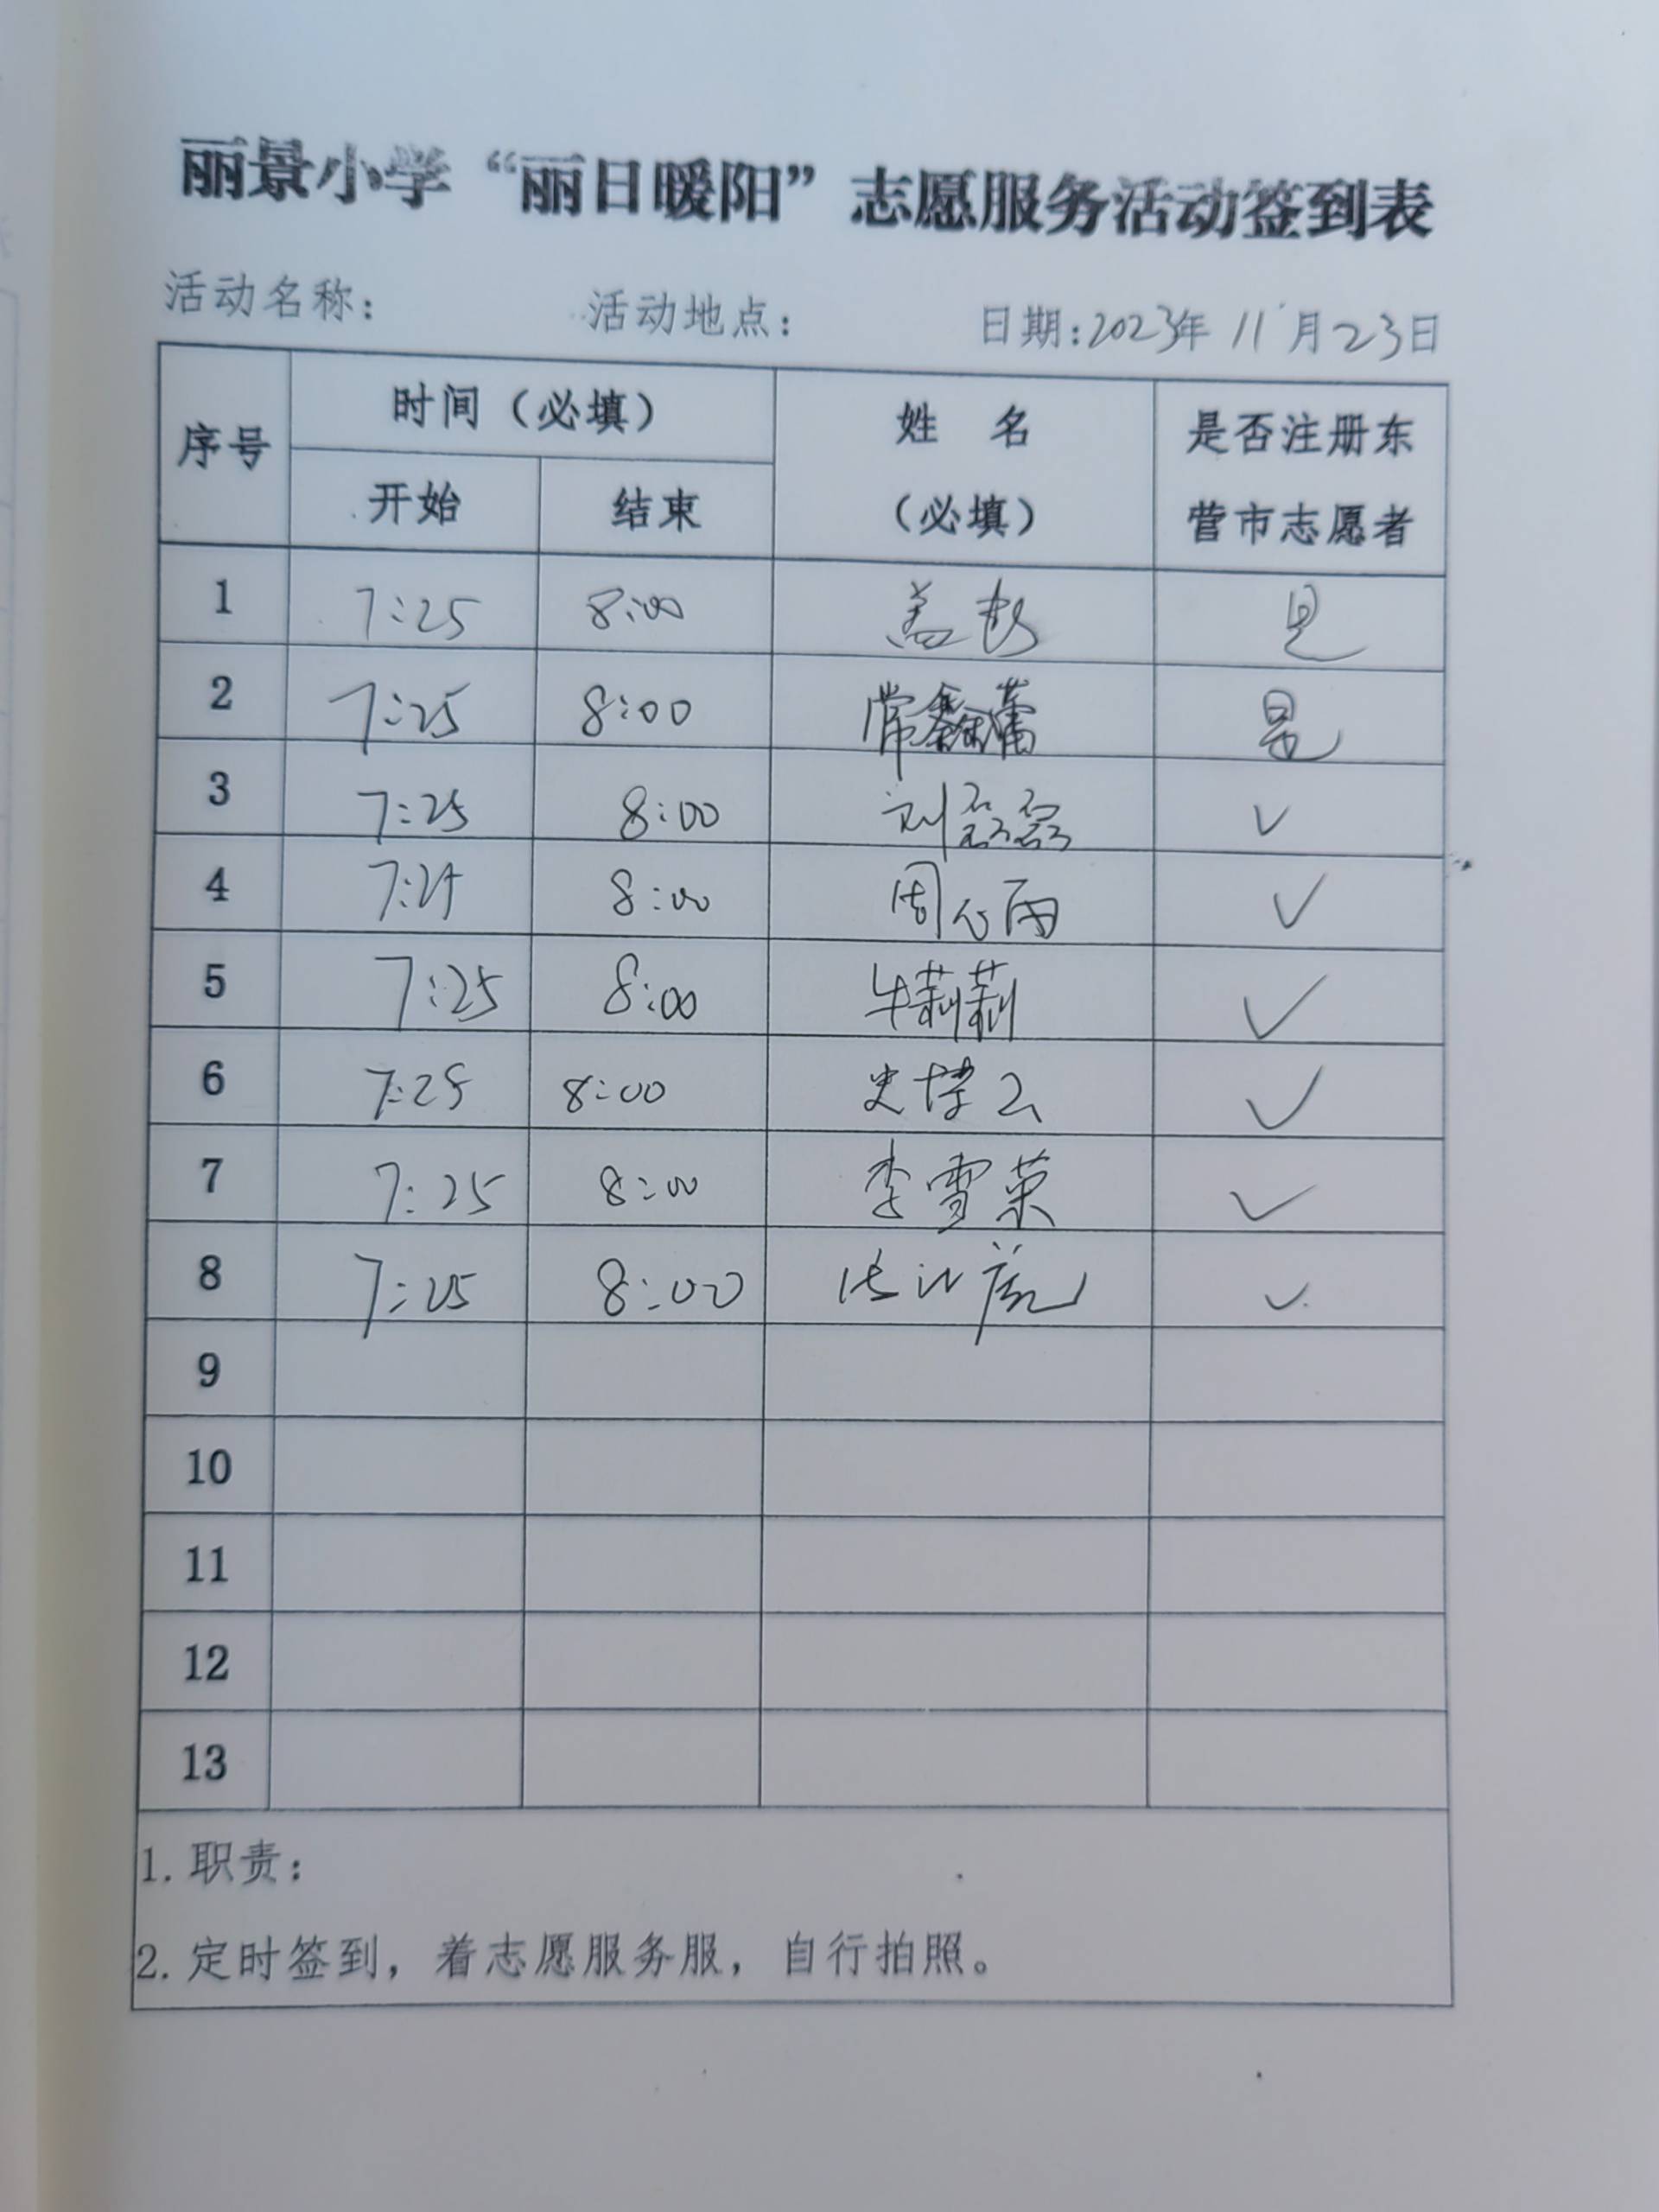 丽景小学“丽日暖阳”志愿服务活动签到表
活动名称： 活动地点： 日期：2023年11月23日
序号 时间（必填） 姓 名（必填） 是否注册东营市志愿者
开始 结束
1 7:25 8:00 盖彬 是
2 7:25 8:00 常鑫蕾 是
3 7:25 8:00 刘磊磊 ✓
4 7:25 8:00 周心雨 ✓
5 7:25 8:00 牛莉莉 ✓
6 7:25 8:00 史博云 ✓
7 7:25 8:00 李雪荣 ✓
8 7:25 8:00 ✓
9
10
11
12
13
1. 职责：
2. 定时签到，着志愿服务服，自行拍照。